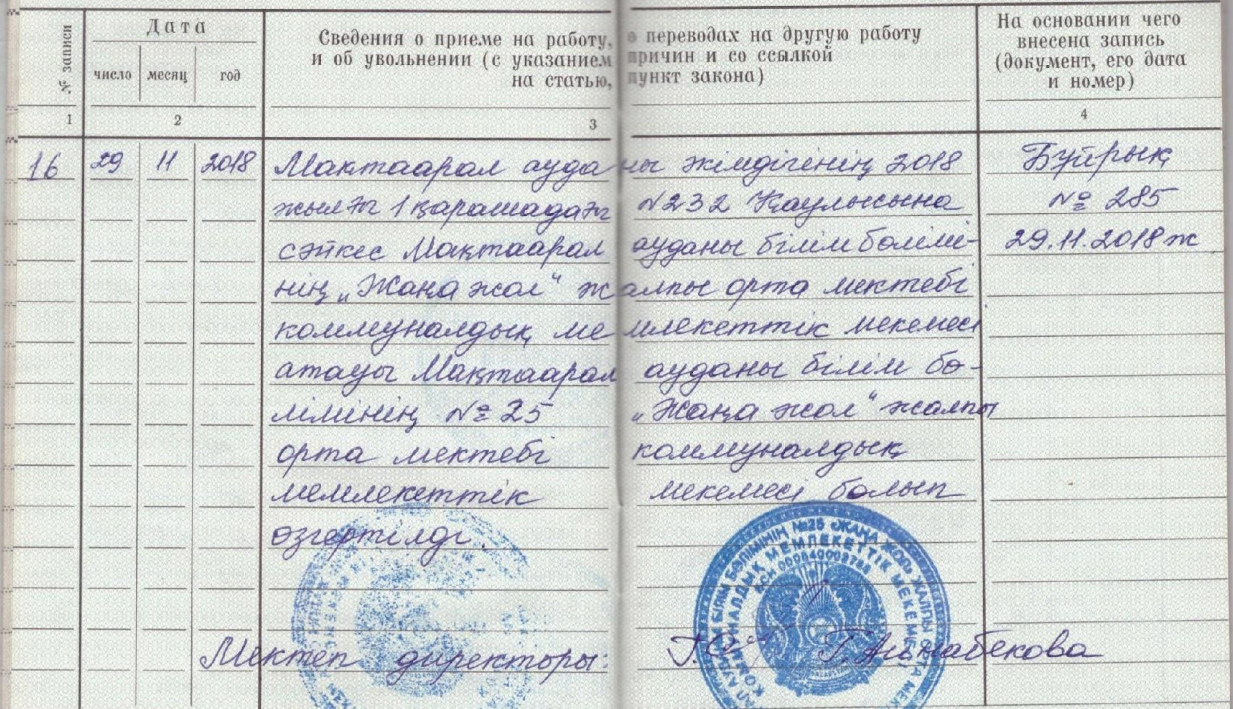 № записи
Дата
число месяц год
Сведения о приеме на работу, о переводах на другую работу
и об увольнении (с указанием причин и со ссылкой
на статью, пункт закона)
На основании чего
внесена запись
(документ, его дата
и номер)
1 2 3 4
16 29 11 2018 Мақтаарал ауданы әкімдігінің 2018 Бұйрық
жылғы 1 қарашадағы №232 Қаулысына № 285
сәйкес Мақтаарал ауданы білім бөлімі- 29.11.2018 ж
нің „Жаңа жол“ жалпы орта мектебі
коммуналдық мемлекеттік мекемесі
атауы Мақтаарал ауданы білім бө-
лімінің № 25 „Жаңа жол“ жалпы
орта мектебі коммуналдық
мемлекеттік мекемесі болып
өзгертілді.
БІЛІМ БӨЛІМІНІҢ №25 «ЖАҢА ЖОЛ» ЖАЛПЫ ОРТА
КОММУНАЛДЫҚ МЕМЛЕКЕТТІК МЕКЕМЕСІ
Мектеп директоры: